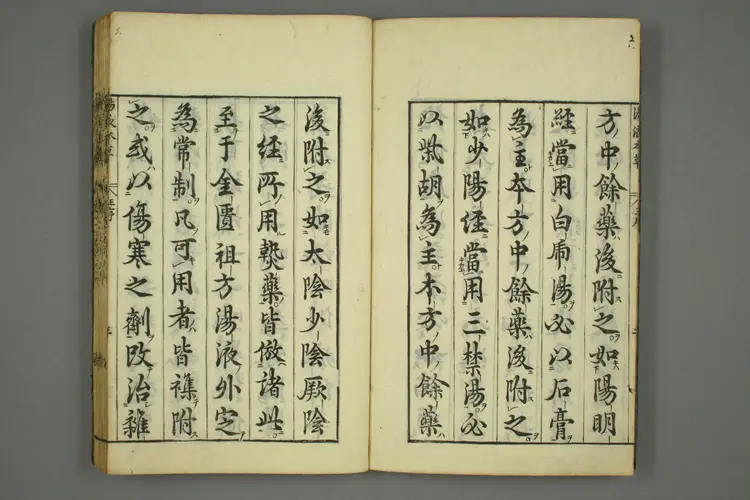 方中餘藥後附之如陽明
經當用白虎湯必以石膏
為主本方中餘藥後附之
如少陽經當用三禁湯必
以柴胡為主本方中餘藥
後附之如太陰少陰厥陰
之經所用熱藥皆倣諸此
至于金匱祖方湯液外定
為常制凡可用者皆襍附
之或以傷寒之劑改治雜